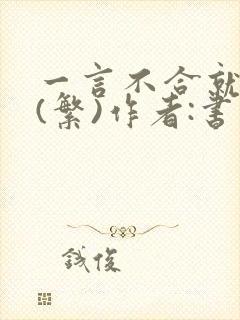 一言不合就
(繁)作者:書
鋮俊